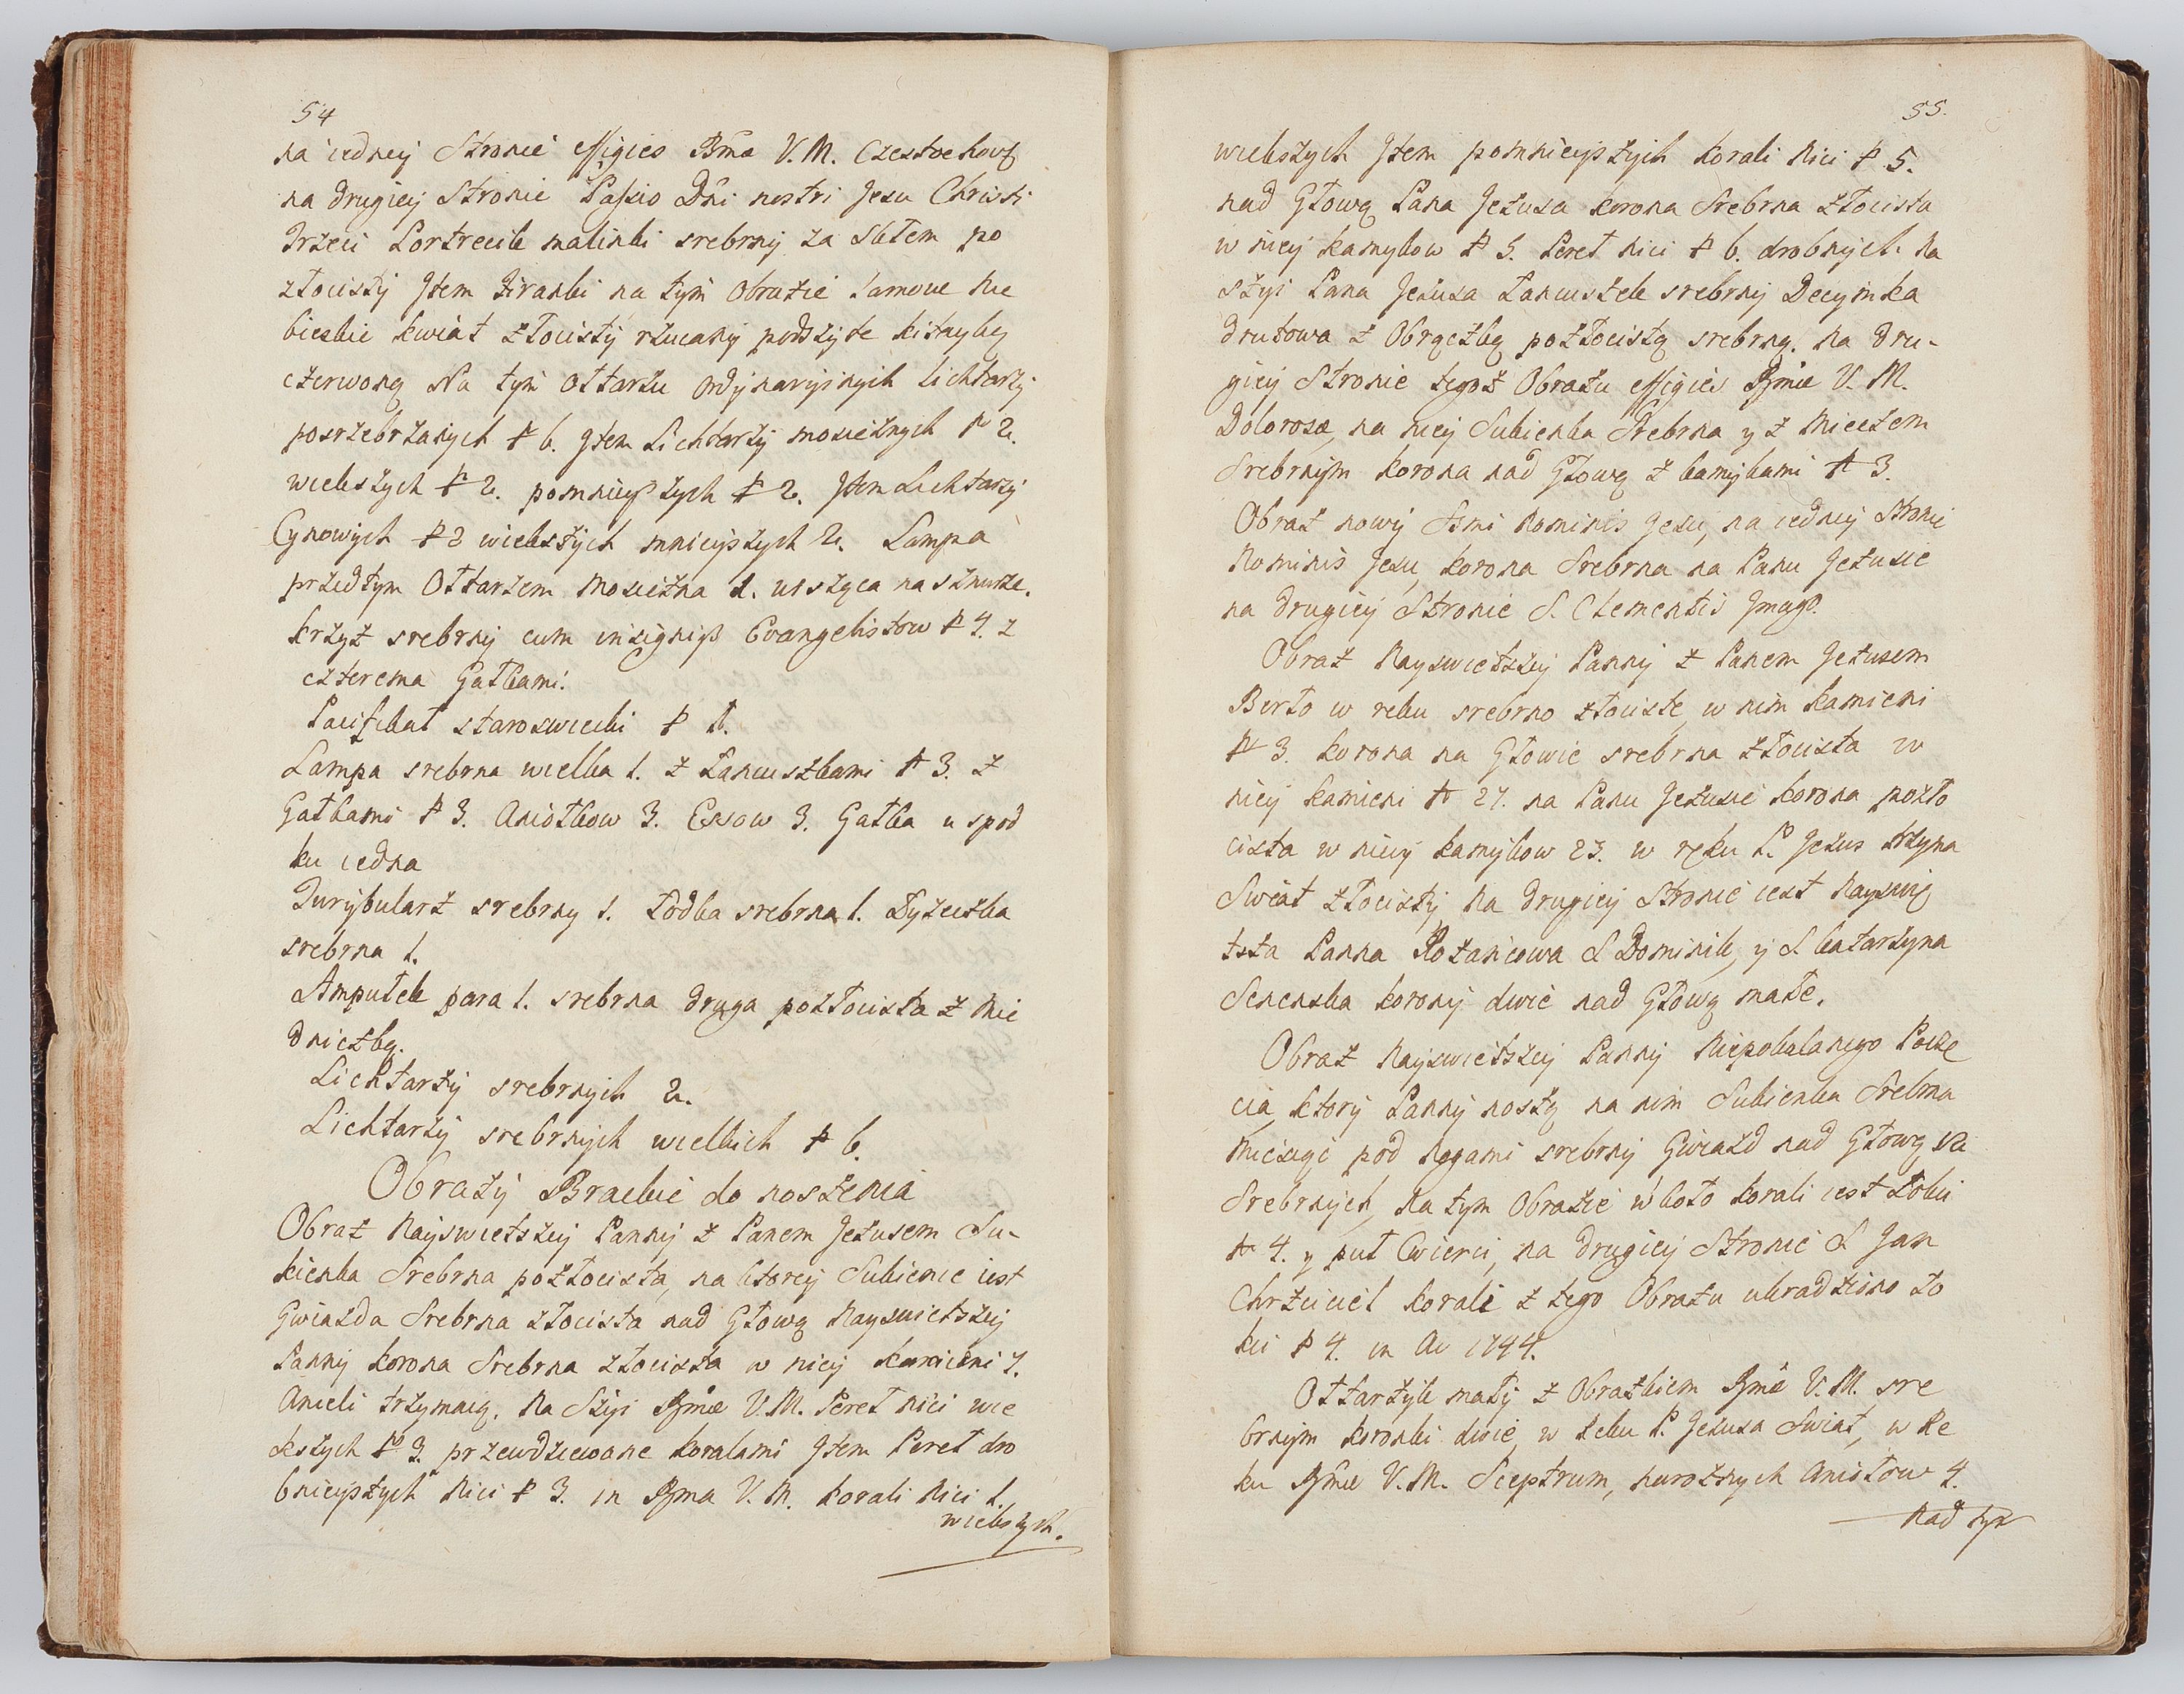 54
na iedney Stronie effigies Bmæ V. M. Czestochow
na drugiey Stronie Passio Dni nostri Jesu Christi
Trzeci Portrecik malinki srebrny za Sklem po
złocisty Jtem firanki na tym Obrazie lamowe nie
bieskie kwiat złocisty rzucany podszyte kitayką
czerwoną Na tym Ołtarzu ordynaryinych lichtarzy
posrzebrzanych № 6. Jtem Lichtarzy mosieznych № 2.
wiekszych № 2. pomnieyszych № 2. Jtem Lichtarzy
Cynowych № 2 wiekszych mnieyszych 2. Lampa
przed tym Ołtarzem Mosiezna 1. wisząca na sznurze.
krzyz srebrny cum insigniis Evangelistow № 4. z
czterema Gałkami.
Pacifikał staroswiecki № 1.
Lampa srebrna wielka 1. z Łancuszkami № 3. z
Gałkami № 3. Aniołkow 3. Essow 3. Gałka u spod
ku iedna
Turybularz srebrny 1. Łodka srebrna 1. Łyzeczka
srebrna 1.
Ampułek para 1. srebrna druga pozłocista z Mie
dniczką.
Lichtarzy srebrnych 2.
Lichtarzy srebrnych wielkich № 6.
Obrazy Brackie do noszenia
Obraz Nayswietszey Panny z Panem Jezusem Su-
kienka Srebrna pozłocista, na ktorey Sukience iest
Gwiazda Srebrna złocista nad Głową Nayswietszey
Panny korona Srebrna złocista w niey kamieni 7.
Anieli trzymaią. Na Szyi Bmæ V. M. Pereł nici wie
kszych № 3. przewdziewane koralami Jtem Pereł dro
bnieyszych Nici № 3. in Bma V. M. korali Nici 1.
wiekszych.
55.
wiekszych Jtem pomnieyszych korali Nici № 5.
nad Głową Pana Jezusa korona Srebrna złocista
w niey kamykow № 5. Pereł nici № 6. drobnych Na
szyi Pana Jezusa Łancuszek srebrny Decymka
drutowa z Obrączką pozłocistą srebrną. Na dru-
giey Stronie tegoz Obrazu effigies Bmæ V. M.
Dolorosæ, na niey Sukienka Srebrna y z Mieczem
Srebrnym korona nad Głową z kamykami № 3.
Obraz nowy Ssmi Nominis Jesu, na iedney Stronie
Nominis Jesu, korona Srebrna na Panu Jezusie
na drugiey Stronie S. Clementis Jmago.
Obraz Nayswietszey Panny z Panem Jezusem
Berło w reku srebrno złociste, w nim kamieni
№ 3. korona na Głowie srebrna złocista w
niey kamieni № 27. na Panu Jezusie korona pozło
cista w niey kamykow 23. w ręku P. Jezus trzyma
Swiat złocisty, Na drugiey Stronie iest Nayswię
tsza Panna Rożańcowa S Dominik, y S. katarzyna
Senenska korony dwie nad Głową małe.
Obraz Nayswietszey Panny Niepokalanego Pocze
cia, ktory Panny noszą na nim Sukienka Srebrna
Miesiąc pod Nogami srebrny Gwiazd nad Głową 12
Srebrnych, Na tym Obrazie w koło korali iest Łokci
№ 4. y puł Cwierci, na drugiey Stronie S Jan
Chrzciciel korale z tego Obrazu ukradziono ło
kci № 4. in Aõ 1744.
Ołtarzyk mały z Obrazkiem Bmæ V. M. sre
brnym koronki dwie, w reku P. Jezusa Swiat, w Re
ku Bmæ V. M. Sceptrum, naroznych Aniołow 4.
Nad tym